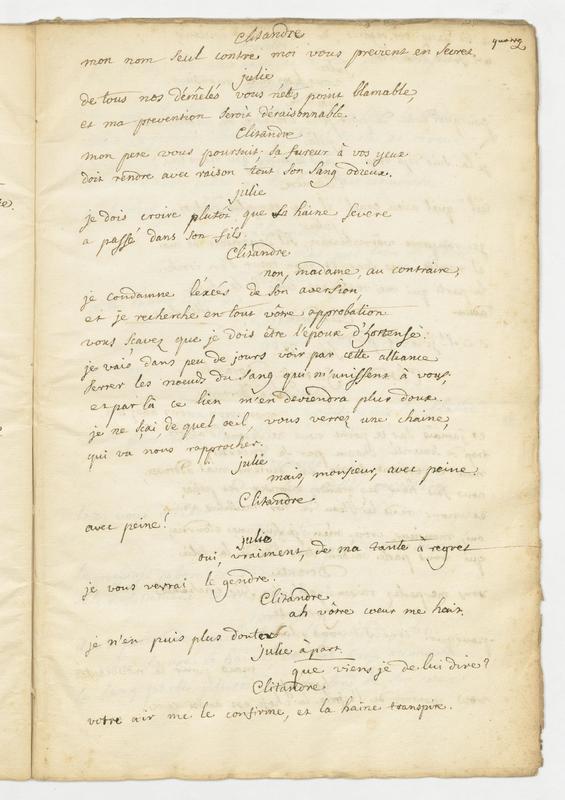 Clitandre
mon nom seul contre moi vous previent en secret.
julie
de tous nos démêlés vous n'êtes point blamable,
et ma prevention seroit déraisonnable.
Clitandre
mon pere vous poursuit; sa fureur à vos yeux
doit rendre avec raison tout son sang odieux.
julie
je dois croire plutôt que sa haine severe
a passé dans son fils.
Clitandre
non, madame, au contraire,
je condamne l'éxcés de son aversion,
et je recherche en tout vôtre approbation.
vous sçavez que je dois être l'epoux d'hortense.
je vais dans peu de jours voir par cette alliance
serrer les noeuds du sang qui m'unissent à vous,
et par là ce lien m'en deviendra plus doux.
je ne sçai, de quel oeil, vous verrez une chaine,
qui va nous rapprocher.
julie
mais, monsieur, avec peine.
Clitandre
avec peine!
julie
oui, vraiment, de ma tante à regret
je vous verrai le gendre.
Clitandre
ah vôtre coeur me hait.
je n'en puis plus douter
julie à part.
que viens je de lui dire?
Clitandre
votre air me le confirme, et la haine transpire.